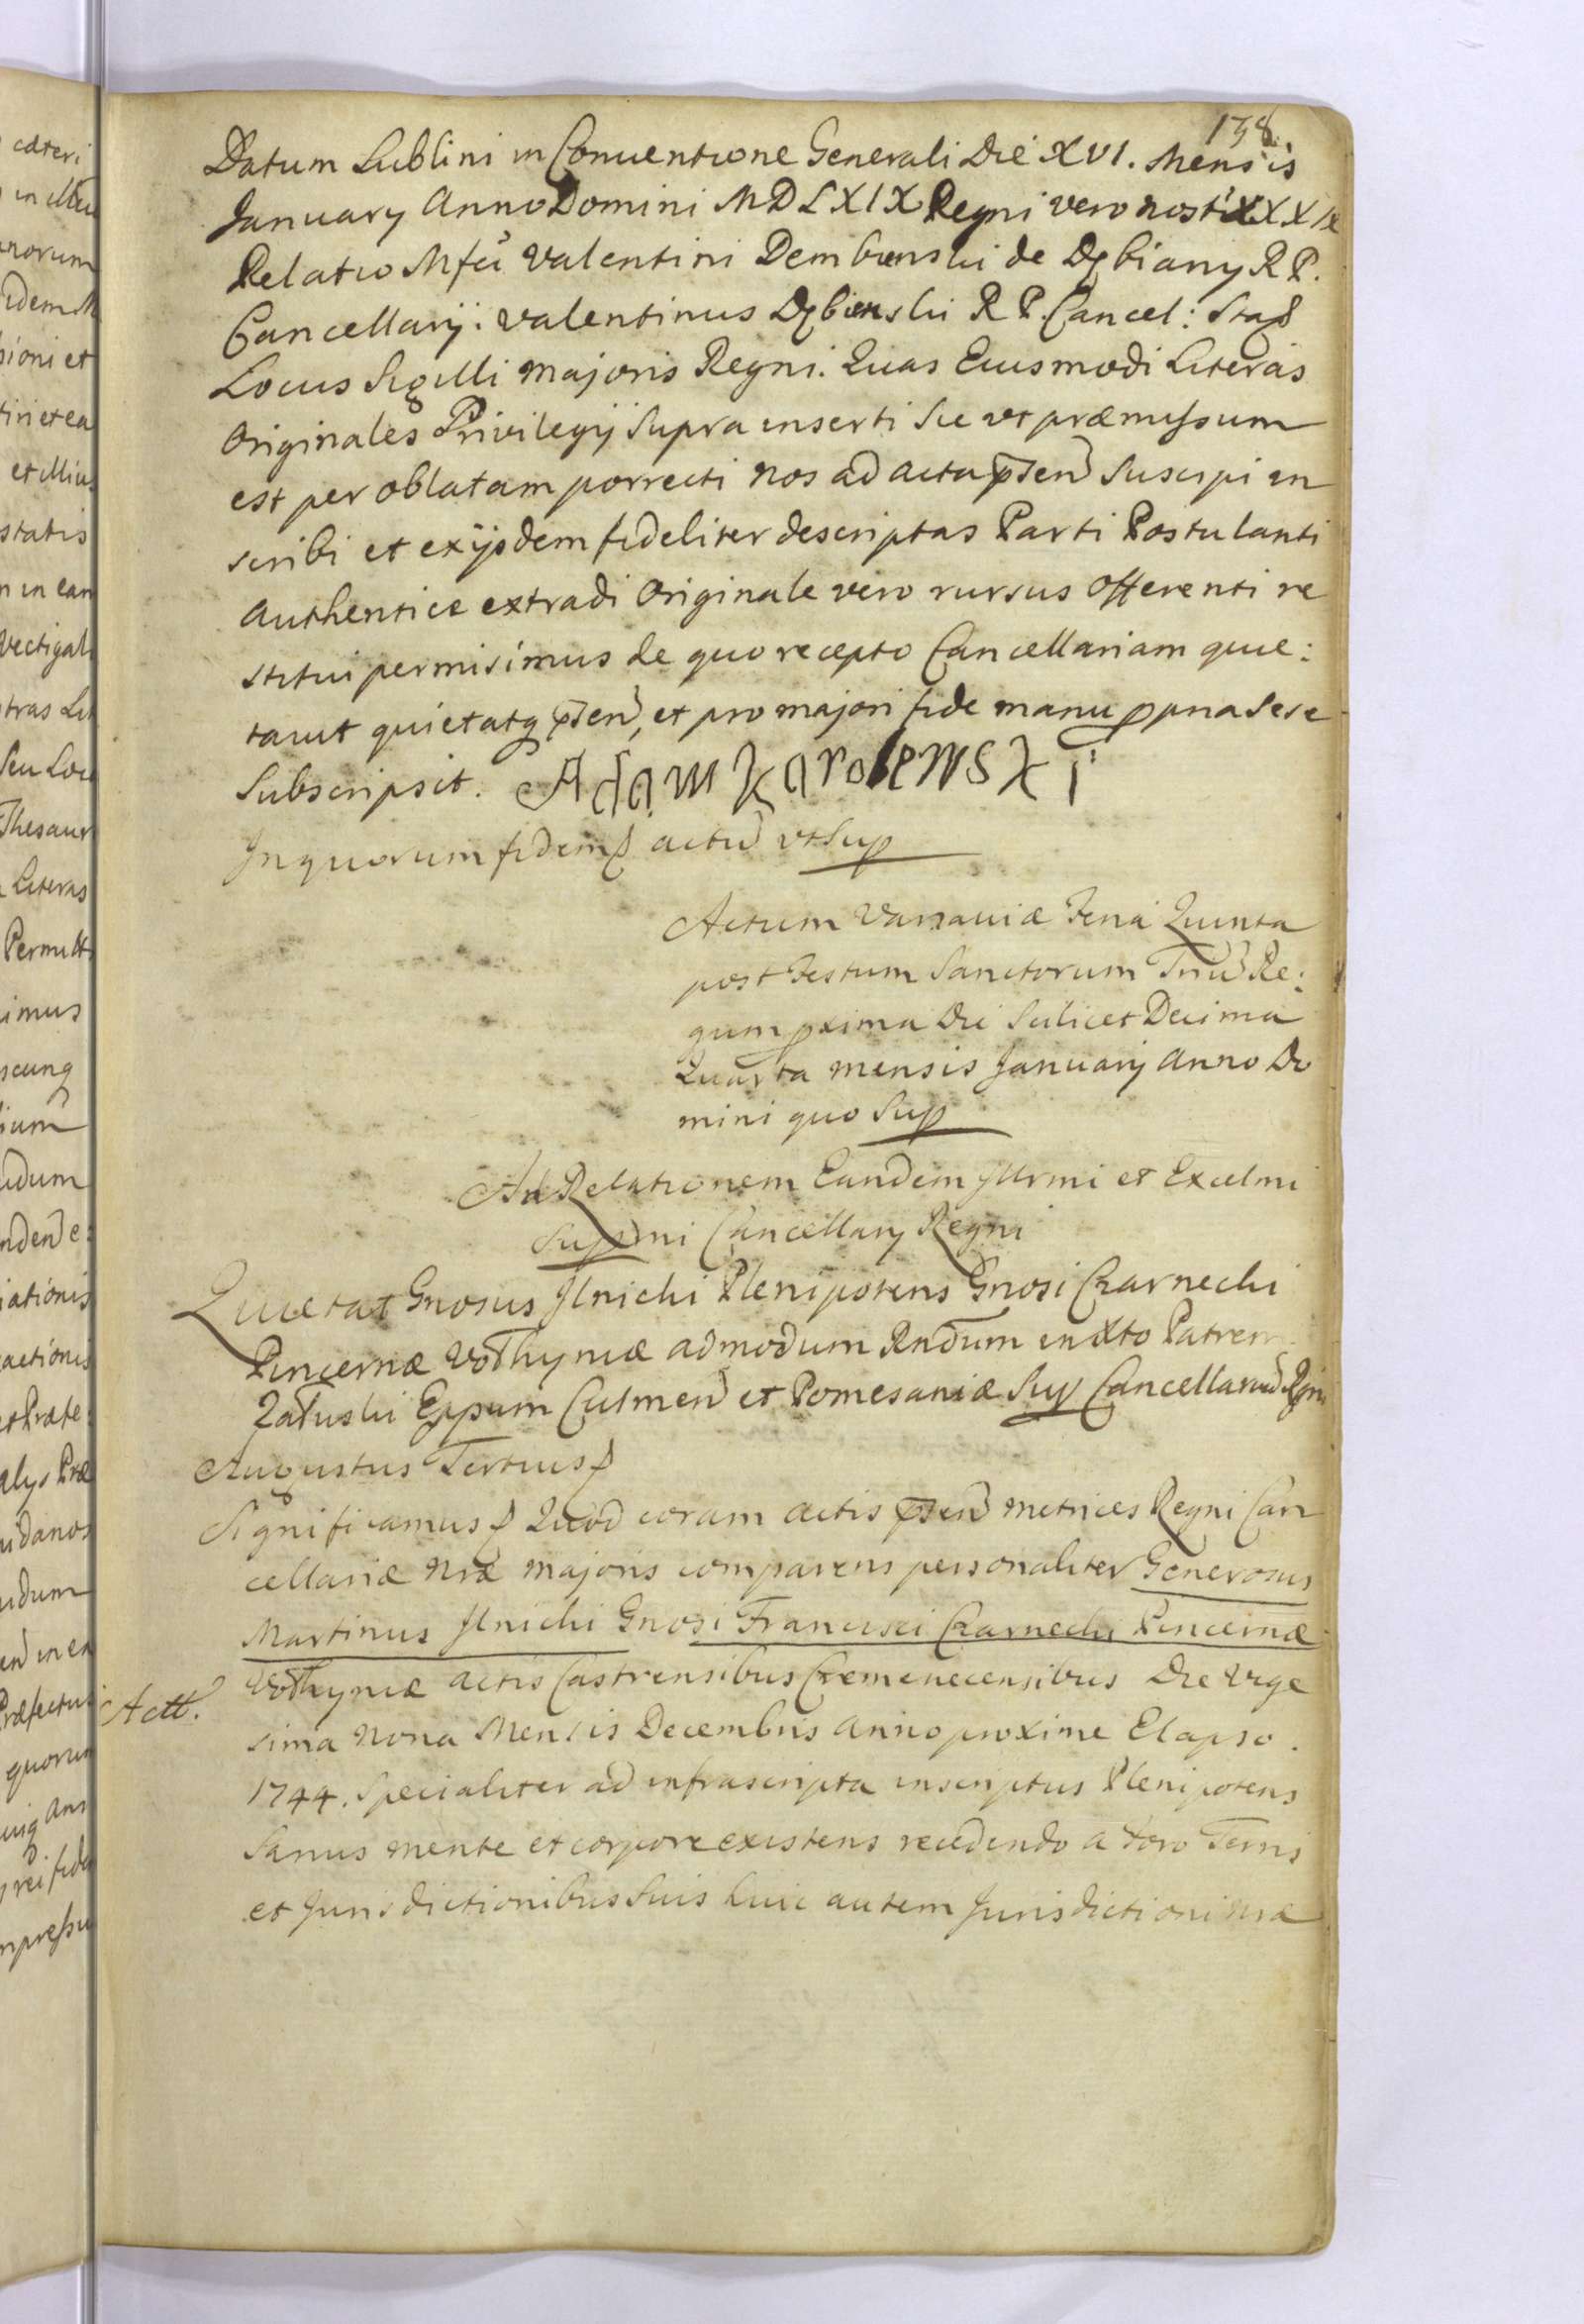 138
Datum Lublini in Conventione Generali Die XVI. Mensis
January Anno Domini MDLXIX Regni vero nostri XXXIX
Relatio Mfci Valentini Dembienski de Dębiany R P.
Cancellarij. Valentinus Dębienski R P. Cancel: Staḡ
Locus Sigilli Majoris Regni. Quas Eiusmodi Literas
Originales Privilegij Supra inserti Sic vt præmissum
est per oblatam porrecti Nos ad acta p̄sen Suscipi in
scribi et ex ijsdem fideliter descriptas Parti Postulanti
Authentice extradi Originale vero rursus Offerenti re
stitui permisimus de quo recepto Cancellariam quie:
tavit quietatq p̄sen, et pro majori fide manu ppria Sese
Subscripsit. Adam Karolewski
In quorum fidem actū vt Sup
Actum Varsaviæ Feria Quinta
post Festum Sanctorum Triū Re:
gum pxima Die Scilicet Decima
Quarta mensis January Anno Do
mini quo Sup
Ad Relationem Eandem Jllrmi et Excelmi
Supremi Cancellary Regni
Quietat Gnosus Jlnicki Plenipotens Gnosi Czarnecki
Pincernæ Vołhyniæ admodum Rndum in Xto Patrem
Załuski Eppum Culmen et Pomesaniæ Sup Cancellariū Rgni
Augustus Tertius
Significamus Quod coram actis p̄sen metrices Regni Can
cellariæ Nræ majoris comparens personaliter Generosus
Martinus Jlnicki Gnosi Francisci Czarnecki Pincernæ
Vołhyniæ actis Castrensibus Cremenecensibus Die Vige
Actt.
sima Nona Mensis Decembris Anno proxime Elapso.
1744. Specialiter ad infrascripta inscriptus Plenipotens
Sanus mente et corpore existens recedendo a foro Terris
et Jurisdictionibus Suis huic autem Jurisdictioni Nræ